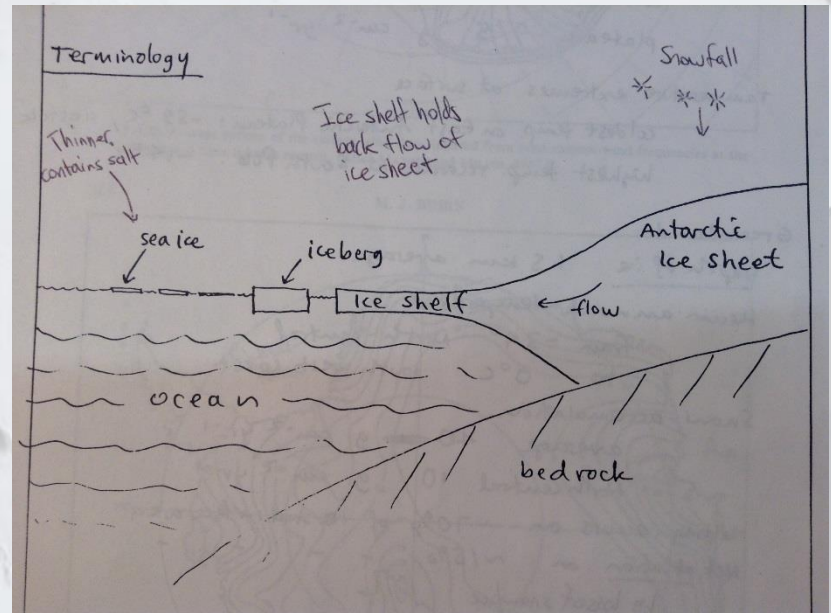 Terminology
Snowfall
Thinner,
contains salt
Ice shelf holds
back flow of
ice sheet
sea ice
iceberg
Antarctic
Ice sheet
Ice shelf
flow
ocean
bedrock